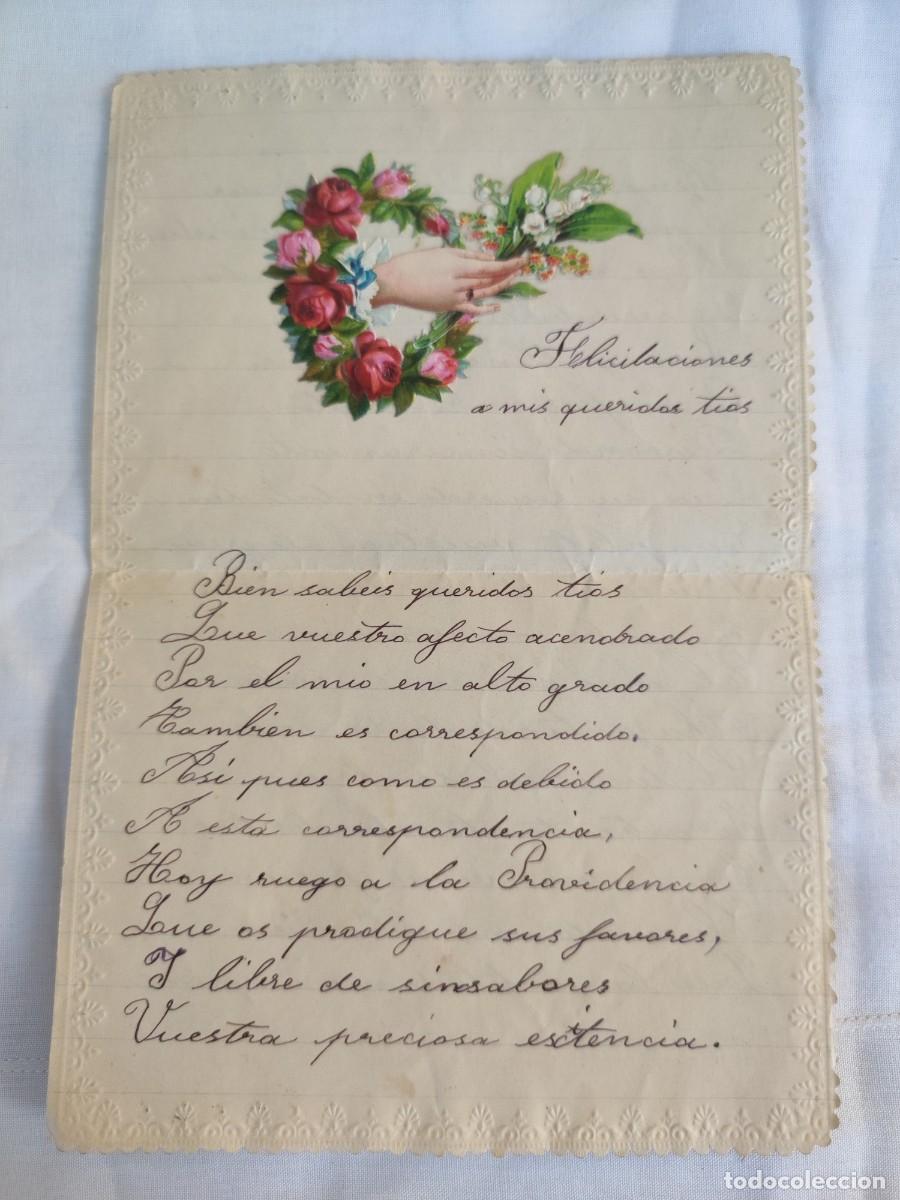 Felicitaciones
a mis queridos tios
Bien sabeis queridos tios
Que vuestro afecto acendrado
Por el mio en alto grado
Tambien es correspondido.
Así pues como es debido
A esta correspondencia,
Hoy ruego a la Providencia
Que os prodigue sus favores,
Y libre de sinsabores
Vuestra preciosa existencia.
todocoleccion